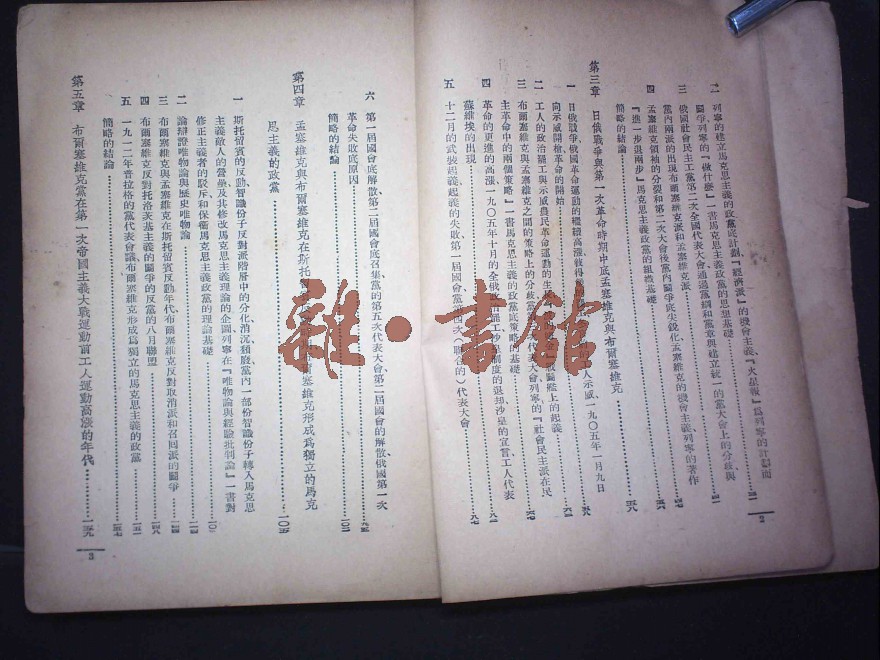 二 列寧的建立馬克思主義的政黨底計劃『經濟派』的機會主義『火星報』爲列寧的計劃而
鬭爭列寧的『做什麼』一書馬克思主義政黨的思想基礎
三 俄國社會民主工黨第二次全國代表大會通過黨綱和黨章與建立統一的黨大會上的分歧與
黨內兩派的出現布爾塞維克派和孟塞維克派
四 孟塞維克領袖的分裂和第二次大會後黨內鬭爭底尖銳化孟塞維克的機會主義列寧的著作
『進一步退兩步』馬克思主義政黨的組織基礎
簡略的結論
第三章 日俄戰爭與第一次革命時期中底孟塞維克與布爾塞維克
一 日俄戰爭、俄國革命運動的繼續高漲彼得 人示威、一九〇五年一月九日
向示威開槍、革命的開始
二 工人的政治罷工與示威農民革命運動的生 戰鬭艦上的起義
三 布爾塞維克與孟塞維克之間的策略上的分歧黨 大會列寧的『社會民主派在民
主革命中的兩個策略』一書馬克思主義的政黨底策略的基礎
四 革命的更進的高漲、一九〇五年十月的全俄 罷工沙皇制度的退却沙皇的宣言工人代表
蘇維埃的出現
五 十二月的武裝起義起義的失敗第一屆國會、黨 四次（聯合的）代表大會
2
六 第一屆國會底解散、第二屆國會底召集黨的第五次代表大會、第二屆國會的解散俄國第一次
革命失敗底原因
簡略的結論
第四章 孟塞維克與布爾塞維克在斯托 爾塞維克形成爲獨立的馬克
思主義的政黨 一〇五
一 斯托留賓的反動智識份子反對派階層中的分化消沉頹廢黨內一部份智識份子轉入馬克思
主義敵人的營壘及其修改馬克思主義理論的企圖列寧在『唯物論與經驗批判論』一書對
修正主義者的駁斥和保衛馬克思主義政黨的理論基礎
二 論辯證唯物論與歷史唯物論
三 布爾塞維克與孟塞維克在斯托留賓反動年代、布爾塞維克反對取消派和召回派的鬭爭
四 布爾塞維克反對托洛茨基主義的鬭爭的反黨的八月聯盟
五 一九一二年普拉格的黨代表會議布爾塞維克形成爲獨立的馬克思主義的政黨
簡略的結論
第五章 布爾塞維克黨在第一次帝國主義大戰運動前工人運動高漲的年代 一五九
3
雜·書館